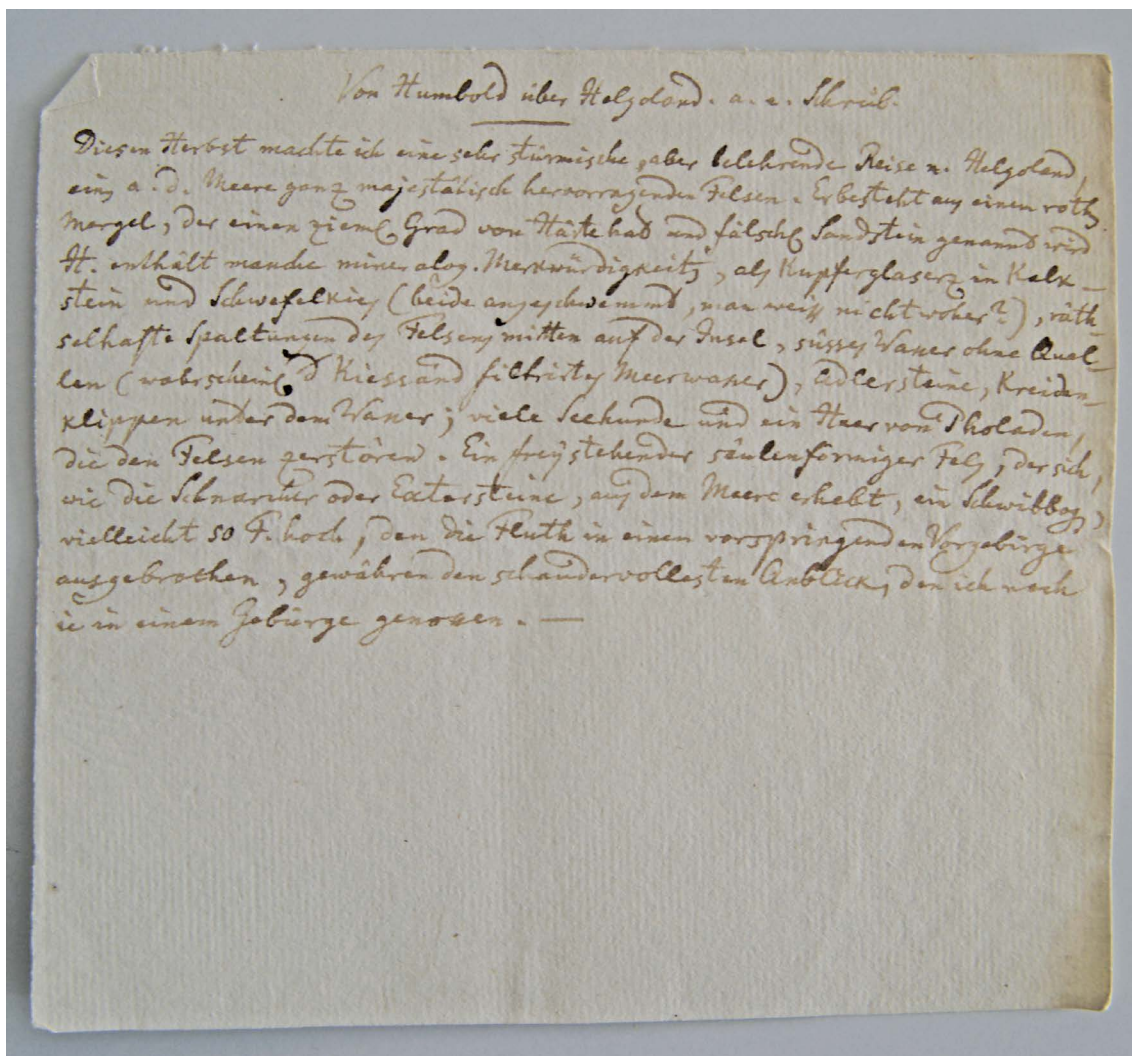 Von Humbold über Helgoland. a. e. Schreib.
Diesen Herbst machte ich eine sehr stürmische, aber belehrende Reise n. Helgoland,
einem a. d. Meere ganz majestätisch hervorragenden Felsen. Er besteht aus einem rothen
Mergel, der einen zieml. Grad von Härte hat und fälschl. Sandstein genannt wird
H. enthält manche mineralog. Merkwürdigkeiten, als Kupferglaserz in Kalk-
stein und Schwefelkies (beide angeschwemmt, man weiss nicht woher?), räth-
selhafte Spaltungen des Felsens mitten auf der Insel, süsses Wasser ohne Quel-
len (wahrscheinl. d Kiessand filtrirtes Meerwasser), Adlersteine, Kreiden-
klippen unter dem Wasser; viele Seehunde und ein Heer von Pholaden,
die den Felsen zerstören. Ein freÿstehender säulenförmiger Fels, der sich,
wie die Schnarcher oder Extersteine, aus dem Meere erhebt, ein Schwibbogen,
vielleicht 50 F. hoch, den die Fluth in einem vorspringenden Vorgebürge
ausgebrochen, gewähren den schaudervollesten Anblick, den ich noch
ie in einem Gebürge genossen. —